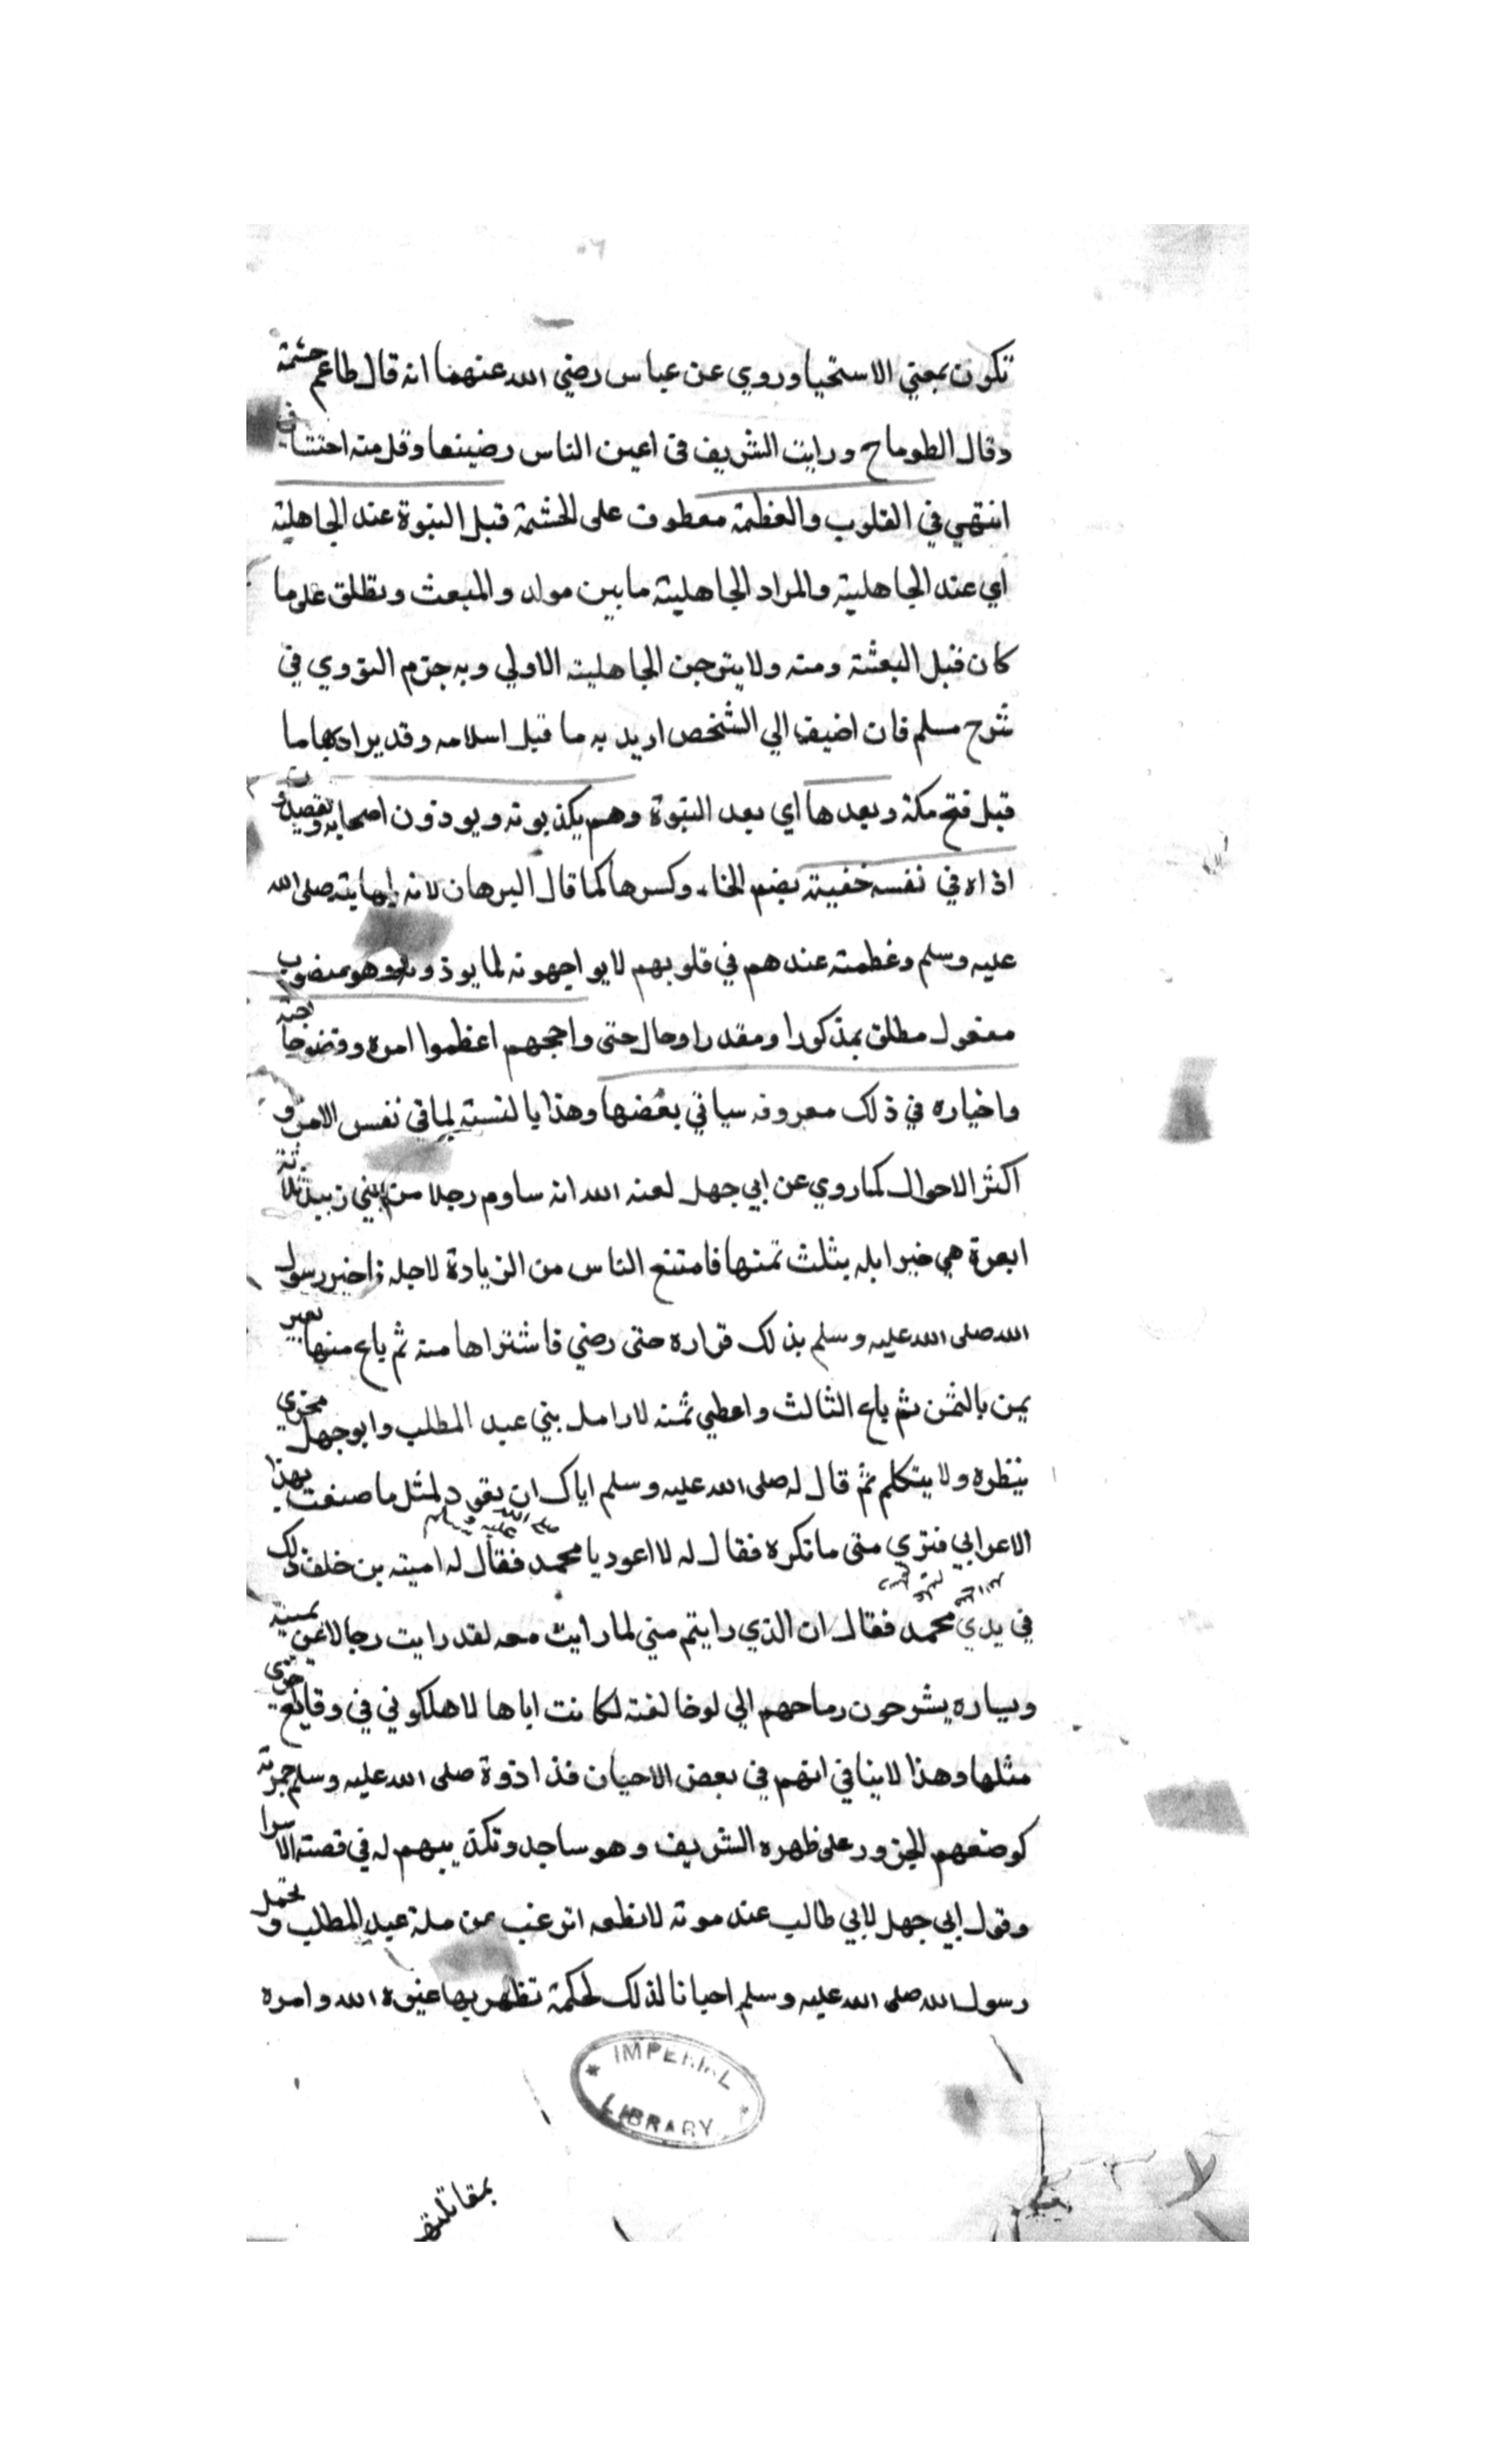 تكون بمعني الاستحيا وروي عن عباس رضي الله عنهما انه قال طاعم حشمة
وقال الطوماح ورايت الشريف في اعين الناس وضيعا وقل منه احتشا
انتهي في القلوب والعظمة معطوف على الحشمة قبل النبوة عند الجاهلية
اي عند الجاهلية والمراد الجاهلية ما بين مولد والمبعث وتطلق على ما
كان قبل البعثة ومنه ولا تبرجن الجاهلية الاولي وبه جزم النووي في
شرح مسلم فان اضيف الي الشخص اريد به ما قبل اسلامه وقد يراد بها ما
قبل فتح مكة وبعدها اي بعد النبوة وهم يكذبونه ويوذون اصحابه ويقصدون
اذاه في نفسه خفية بضم الخاء وكسرها كما قال البرهان لانه لمهابته صلى الله
عليه وسلم وعظمته عندهم في قلوبهم لا يواجهونه لما يوذونه وهو منصوب
مفعول مطلق بمذكورا ومقدرا وحال حتى واجههم اعظموا امره وقضوا حاجته
واخباره في ذلك معروفه سياتي بعضها وهذا بالنسبة لما في نفس الامر و
اكثر الاحوال كما روي عن ابي جهل لعنه الله انه ساوم رجلا من بني زبيد ثلاثة
ابعرة هي خير ابله بثلث ثمنها فامتنع الناس من الزيادة لاجله فاخبر رسول
الله صلى الله عليه وسلم بذلك فزاره حتى رضي فاشتراها منه ثم باع منها بعير
ين بالثمن ثم باع الثالث واعطي ثمنه لارامل بني عبد المطلب وابو جهل مخزي
ينظره ولا يتكلم ثم قال له صلى الله عليه وسلم اياك ان تعود لمثل ما صنعت بهذا
الاعرابي فتري مني ما تكره فقال له لا اعود يا محمد صلى الله عليه وسلم فقال له امية بن خلف ذلك
في يدي محمد فقال ان الذي رايتم مني لما رايت معه لقد رايت رجالا عن يمينه
ويساره يشرعون رماحهم الي لو خالفته لكانت اياها لاهلكوني في وقايع اخرى
مثلها وهذا لا ينافي انهم في بعض الاحيان قد اذوه صلى الله عليه وسلم جهرة
كوضعهم الجزور على ظهره الشريف وهو ساجد وتكذيبهم له في قصة الاسرا
وقول ابي جهل لابي طالب عند موته لا تطعه اترغب عن ملة عبد المطلب و تحمل
رسول الله صلى الله عليه وسلم احيانا لذلك لحكمة تظهر بها غيرة الله وامره
IMPERIAL LIBRARY
بمقاتلته